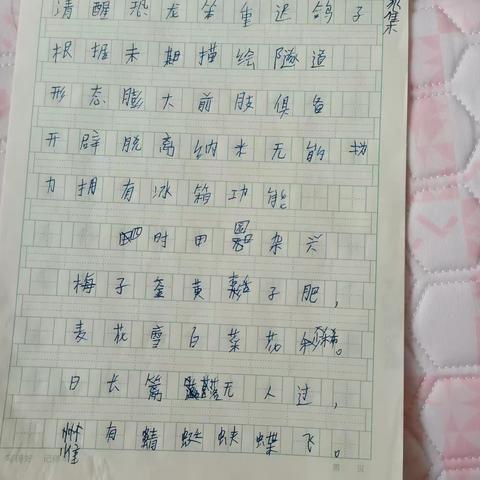 清醒恐龙笨重迟鸽子
根据未期描绘隧道
形态膨大前肢俱备
开辟脱离纳米无能物
力拥有冰箱功能
四时田 杂兴
梅子金黄 子肥，
麦花雪白菜花稀。
日长篱 无人过，
惟有蜻蜓蛱蝶飞。